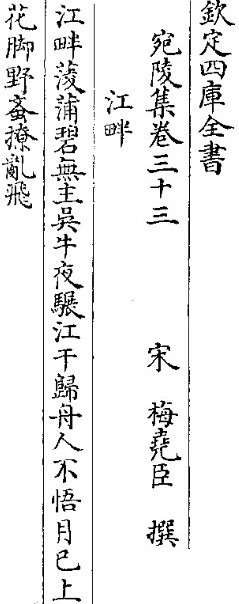 欽定四庫全書
宛陵集卷三十三
宋 梅堯臣 撰
江畔
江畔菱蒲碧無主吳牛夜驅江干歸舟人不悟月已上
花脚野蚉撩亂飛